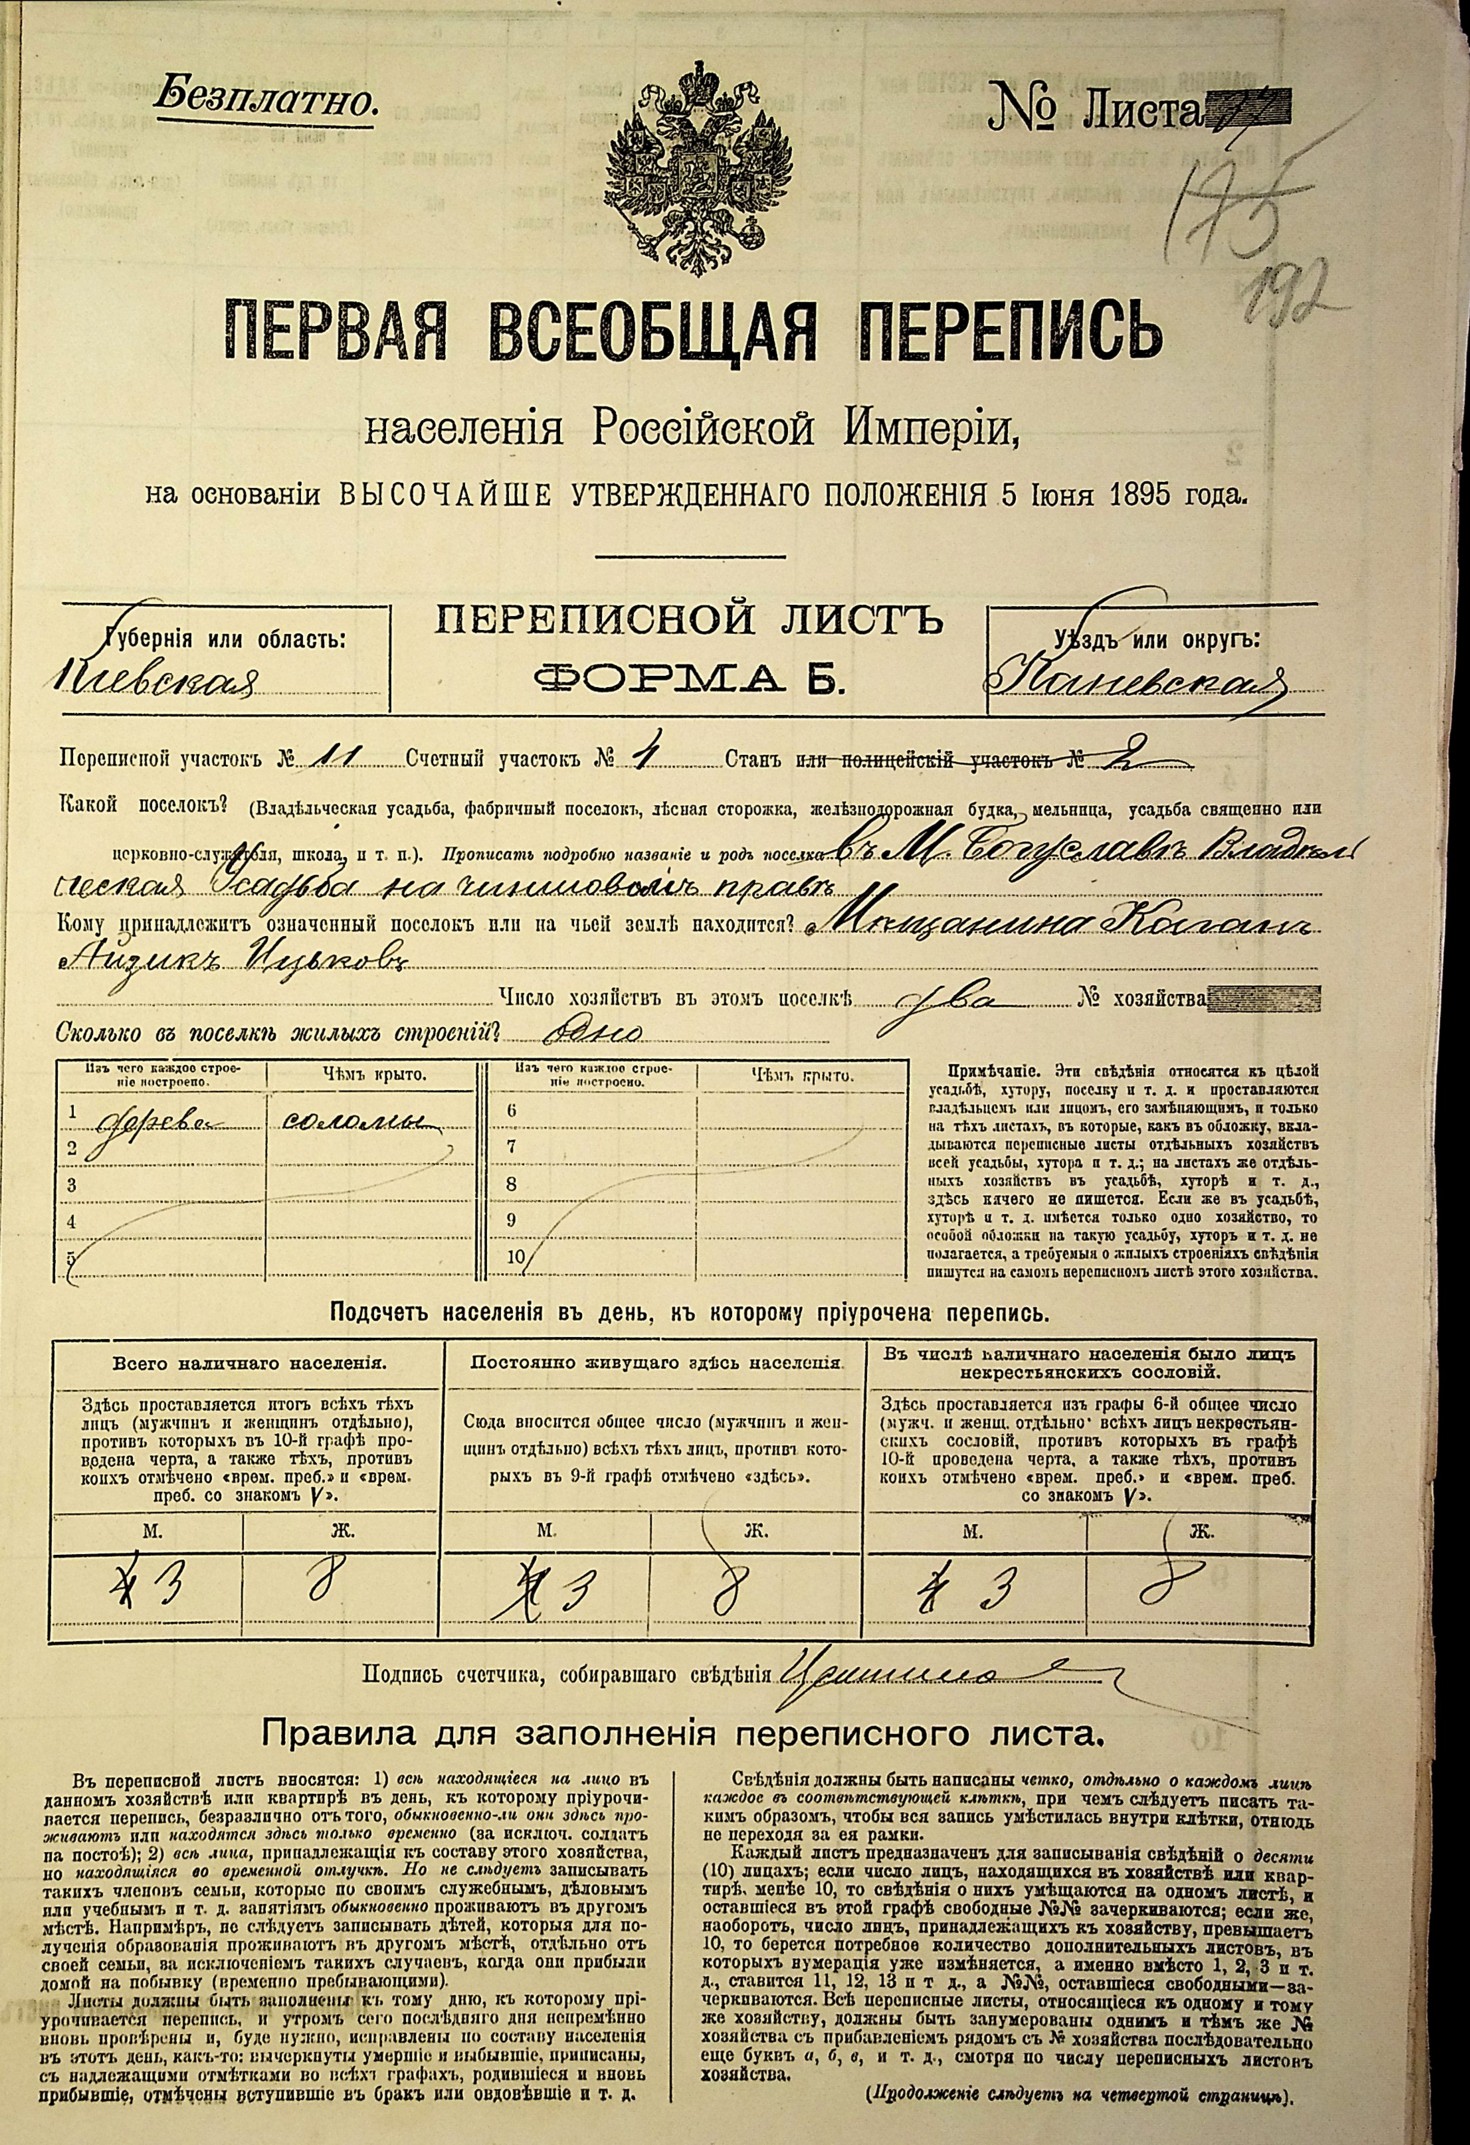 Безплатно.
№ Листа
175
192
ПЕРВАЯ ВСЕОБЩАЯ ПЕРЕПИСЬ
населенія Россійской Имперіи,
на основаніи ВЫСОЧАЙШЕ УТВЕРЖДЕННАГО ПОЛОЖЕНІЯ 5 Іюня 1895 года.
Губернія или область:
Кіевская
ПЕРЕПИСНОЙ ЛИСТЪ
ФОРМА Б.
Уѣздъ или округъ:
Каневская
Переписной участокъ № 11 Счетный участокъ № 4 Станъ или полицейскій участокъ № 2
Какой поселокъ? (Владѣльческая усадьба, фабричный поселокъ, лѣсная сторожка, желѣзнодорожная будка, мельница, усадьба священно или
церковно-служителя, школа, и т. п.). Прописать подробно названіе и родъ поселка въ М. Богуславѣ Владѣл
ческая Усадьба на чиншовомъ правѣ
Кому принадлежитъ означенный поселокъ или на чьей землѣ находится? Мѣщанина Коганъ
Айзикъ Ицьковъ
Число хозяйствъ въ этомъ поселкѣ два № хозяйства
Сколько въ поселкѣ жилыхъ строеній? одно
Изъ чего каждое строе-
ніе построено.
Чѣмъ крыто.
Изъ чего каждое строе-
ніе построено.
Чѣмъ крыто.
1 дерева соломы
2
3
4
5
6
7
8
9
10
Примѣчаніе. Эти свѣдѣнія относятся къ цѣлой
усадьбѣ, хутору, поселку и т. д. и проставляются
владѣльцемъ или лицомъ, его замѣняющимъ, и только
на тѣхъ листахъ, въ которые, какъ въ обложку, вкла-
дываются переписные листы отдѣльныхъ хозяйствъ
всей усадьбы, хутора и т. д.; на листахъ же отдѣль-
ныхъ хозяйствъ въ усадьбѣ, хуторѣ и т. д.,
здѣсь ничего не пишется. Если же въ усадьбѣ,
хуторѣ и т. д. имѣется только одно хозяйство, то
особой обложки на такую усадьбу, хуторъ и т. д. не
полагается, а требуемыя о жилыхъ строеніяхъ свѣдѣнія
пишутся на самомъ переписномъ листѣ этого хозяйства.
Подсчетъ населенія въ день, къ которому пріурочена перепись.
Всего наличнаго населенія.
Постоянно живущаго здѣсь населенія.
Въ числѣ наличнаго населенія было лицъ
некрестьянскихъ сословій.
Здѣсь проставляется итогъ всѣхъ тѣхъ
лицъ (мужчинъ и женщинъ отдѣльно),
противъ которыхъ въ 10-й графѣ про-
ведена черта, а также тѣхъ, противъ
коихъ отмѣчено «врем. преб.» и «врем.
преб. со знакомъ V».
Сюда вносится общее число (мужчинъ и жен-
щинъ отдѣльно) всѣхъ тѣхъ лицъ, противъ кото-
рыхъ въ 9-й графѣ отмѣчено «здѣсь».
Здѣсь проставляется изъ графы 6-й общее число
(мужч. и женщ. отдѣльно) всѣхъ лицъ некрестьян-
скихъ сословій, противъ которыхъ въ графѣ
10-й проведена черта, а также тѣхъ, противъ
коихъ отмѣчено «врем. преб.» и «врем. преб.
со знакомъ V».
М. Ж. М. Ж. М. Ж.
4 3 8 4 3 8 4 3 8
Подпись счетчика, собиравшаго свѣдѣнія
Правила для заполненія переписного листа.
Въ переписной листъ вносятся: 1) всѣ находящіеся на лицо въ
данномъ хозяйствѣ или квартирѣ въ день, къ которому пріурочи-
вается перепись, безразлично отъ того, обыкновенно-ли они здѣсь про-
живаютъ или находятся здѣсь только временно (за исключ. солдатъ
на постоѣ); 2) всѣ лица, принадлежащія къ составу этого хозяйства,
но находящіяся во временной отлучкѣ. Но не слѣдуетъ записывать
такихъ членовъ семьи, которые по своимъ служебнымъ, дѣловымъ
или учебнымъ и т. д. занятіямъ обыкновенно проживаютъ въ другомъ
мѣстѣ. Напримѣръ, не слѣдуетъ записывать дѣтей, которыя для по-
лученія образованія проживаютъ въ другомъ мѣстѣ, отдѣльно отъ
своей семьи, за исключеніемъ такихъ случаевъ, когда они прибыли
домой на побывку (временно пребывающими).
Листы должны быть заполнены къ тому дню, къ которому прі-
урочивается перепись, и утромъ сего послѣдняго дня непремѣнно
вновь провѣрены и, буде нужно, исправлены по составу населенія
въ этотъ день, какъ-то: вычеркнуты умершіе и выбывшіе, приписаны,
съ надлежащими отмѣтками во всѣхъ графахъ, родившіеся и вновь
прибывшіе, отмѣчены вступившіе въ бракъ или овдовѣвшіе и т. д.
Свѣдѣнія должны быть написаны четко, отдѣльно о каждомъ лицѣ
каждое въ соотвѣтствующей клѣткѣ, при чемъ слѣдуетъ писать та-
кимъ образомъ, чтобы вся запись умѣстилась внутри клѣтки, отнюдь
не переходя за ея рамки.
Каждый листъ предназначенъ для записыванія свѣдѣній о десяти
(10) лицахъ; если число лицъ, находящихся въ хозяйствѣ или квар-
тирѣ, менѣе 10, то свѣдѣнія о нихъ умѣщаются на одномъ листѣ, и
оставшіеся въ этой графѣ свободные №№ зачеркиваются; если же,
наоборотъ, число лицъ, принадлежащихъ къ хозяйству, превышаетъ
10, то берется потребное количество дополнительныхъ листовъ, въ
которыхъ нумерація уже измѣняется, а именно вмѣсто 1, 2, 3 и т.
д., ставится 11, 12, 13 и т д., а №№, оставшіеся свободными—за-
черкиваются. Всѣ переписные листы, относящіеся къ одному и тому
же хозяйству, должны быть занумерованы однимъ и тѣмъ же №
хозяйства съ прибавленіемъ рядомъ съ № хозяйства послѣдовательно
еще буквъ а, б, в, и т. д., смотря по числу переписныхъ листовъ
хозяйства.
(Продолженіе слѣдуетъ на четвертой страницѣ).